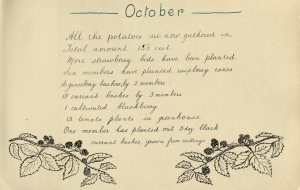 October
All the potatoes are now gathered in
Total amount 13½ cwt.
More strawberry beds have been planted
Six members have planted raspberry canes
gooseberry bushes by 2 members
currant bushes by 3 members
1 cultivated blackberry
12 tomato plants in greenhouse
One member has planted out black
currant bushes, grown from cuttings